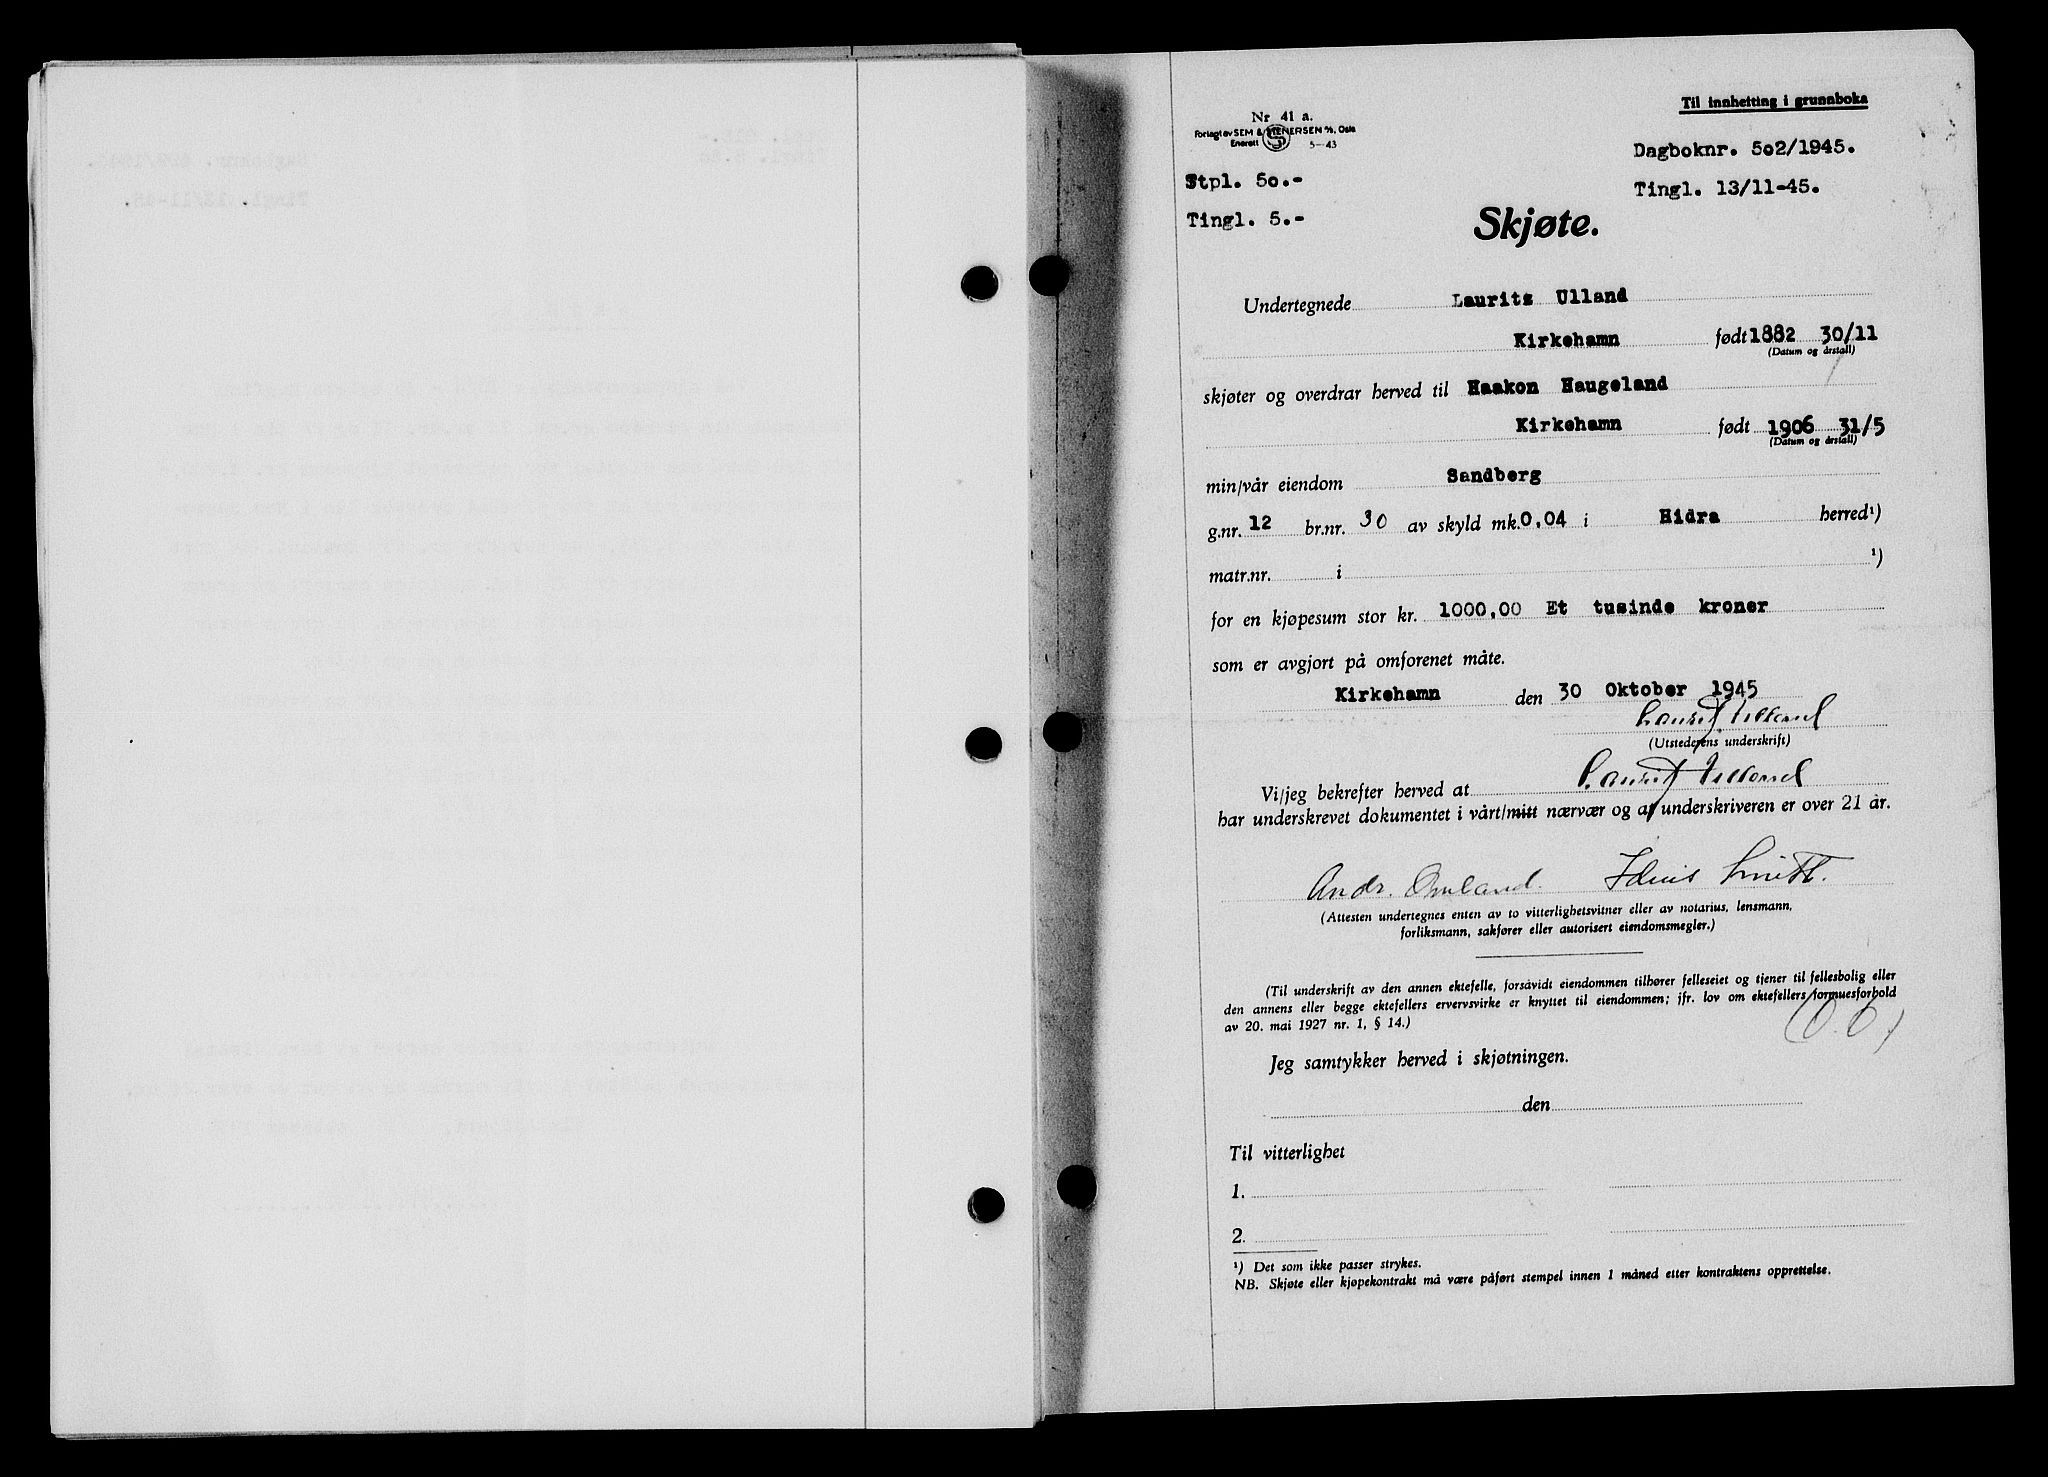 Til innhefting i grunnboka
Nr 41 a.
Forlagt av SEM & STENERSEN A/S, Oslo
Enerett 5-43
Dagboknr. 502/1945.
Stpl. 50.-
Tingl. 13/11-45.
Tingl. 5.-
Skjøte.
Undertegnede Lauritz Ulland
Kirkehamn født 1882 30/11
(Datum og årstall)
skjøter og overdrar herved til Haakon Haugeland
Kirkehamn født 1906 31/5
(Datum og årstall)
min/vår eiendom Sandberg
g.nr. 12 br.nr. 30 av skyld mk. 0,04 i Hidra herred¹)
matr.nr. i ¹)
for en kjøpesum stor kr. 1000,00 Et tusinde kroner
som er avgjort på omforenet måte.
Kirkehamn den 30 Oktober 1945
Lauritz Ulland
(Utstederens underskrift)
Vi/jeg bekrefter herved at Lauritz Ulland
har underskrevet dokumentet i vårt/mitt nærvær og at underskriveren er over 21 år.
Andr. Omland.
(Attesten undertegnes enten av to vitterlighetsvitner eller av notarius, lensmann,
forliksmann, sakfører eller autorisert eiendomsmegler.)
(Til underskrift av den annen ektefelle, forsåvidt eiendommen tilhører felleseiet og tjener til fellesbolig eller
den annens eller begge ektefellers ervervsvirke er knyttet til eiendommen; jfr. lov om ektefellers formuesforhold
av 20. mai 1927 nr. 1, § 14.)
Jeg samtykker herved i skjøtningen.
den
Til vitterlighet
1.
2.
¹) Det som ikke passer strykes.
NB. Skjøte eller kjøpekontrakt må være påført stempel innen 1 måned etter kontraktens opprettelse.